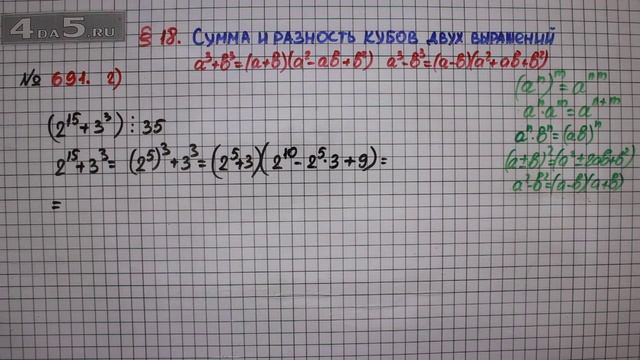 4DA5.RU
§ 18. Сумма и разность кубов двух выражений
a³+b³=(a+b)(a²-ab+b²) a³-b³=(a-b)(a²+ab+b²)
№ 691. 2)
(aⁿ)ᵐ=aⁿᵐ
aⁿ·aᵐ=aⁿ⁺ᵐ
aⁿ·bⁿ=(ab)ⁿ
(a±b)²=(a²±2ab+b²)
a²-b²=(a-b)(a+b)
(2¹⁵+3³)⋮35
2¹⁵+3³= (2⁵)³+3³=(2⁵+3)(2¹⁰-2⁵·3+9)=
=